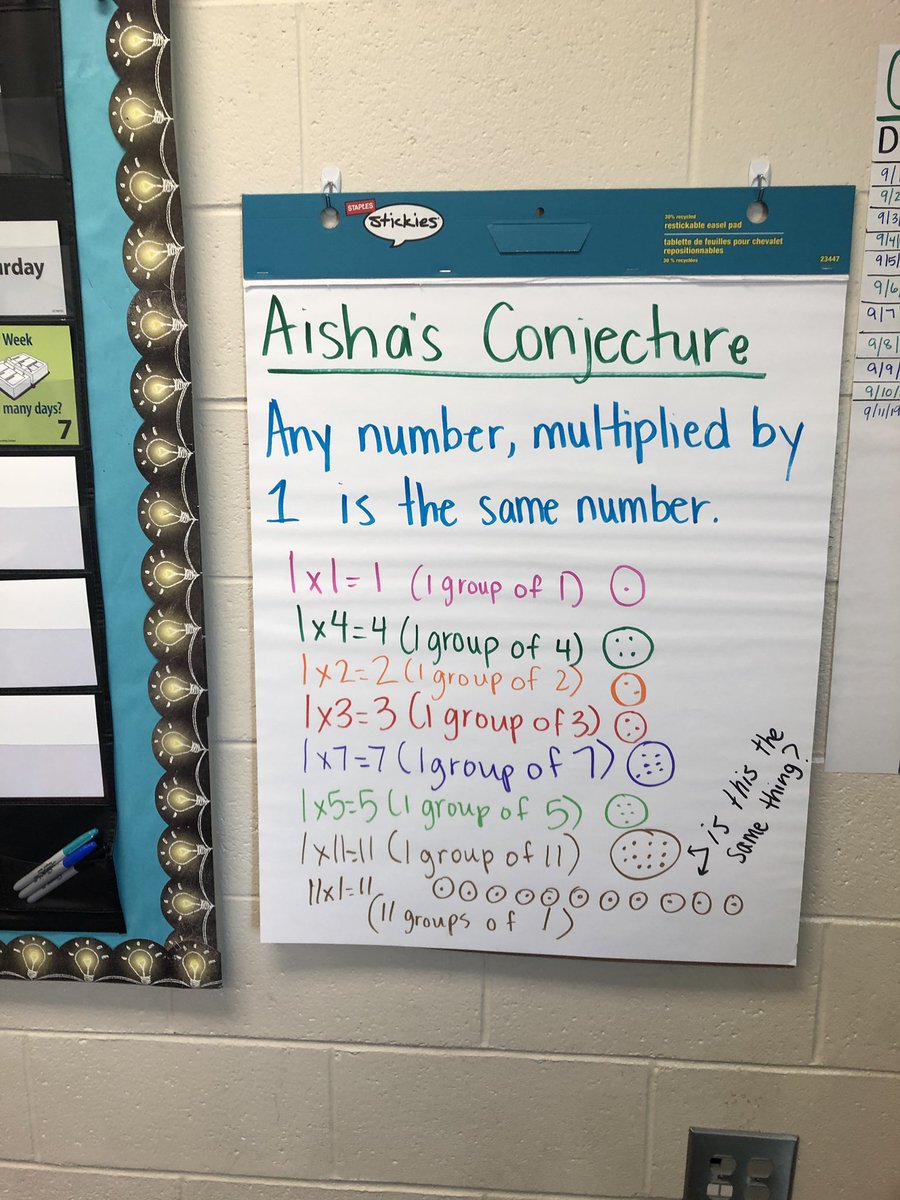 urday
Week
many days?
7
STAPLES
Stickies
30% recycled
restickable easel pad
tablette de feuilles pour chevalet
repositionnables
30 % recyclées
23447
Aisha's Conjecture
Any number, multiplied by
1 is the same number.
1x1=1 (1 group of 1)
1x4=4 (1 group of 4)
1x2=2 (1 group of 2)
1x3=3 (1 group of 3)
1x7=7 (1 group of 7)
1x5=5 (1 group of 5)
1x11=11 (1 group of 11)
11x1=11
(11 groups of 1)
is this the
same thing?
D
9/
9/2
9/3/
9/4/
9/5/
9/6/
9/7
9/8/
9/9/
9/10/
9/11/19